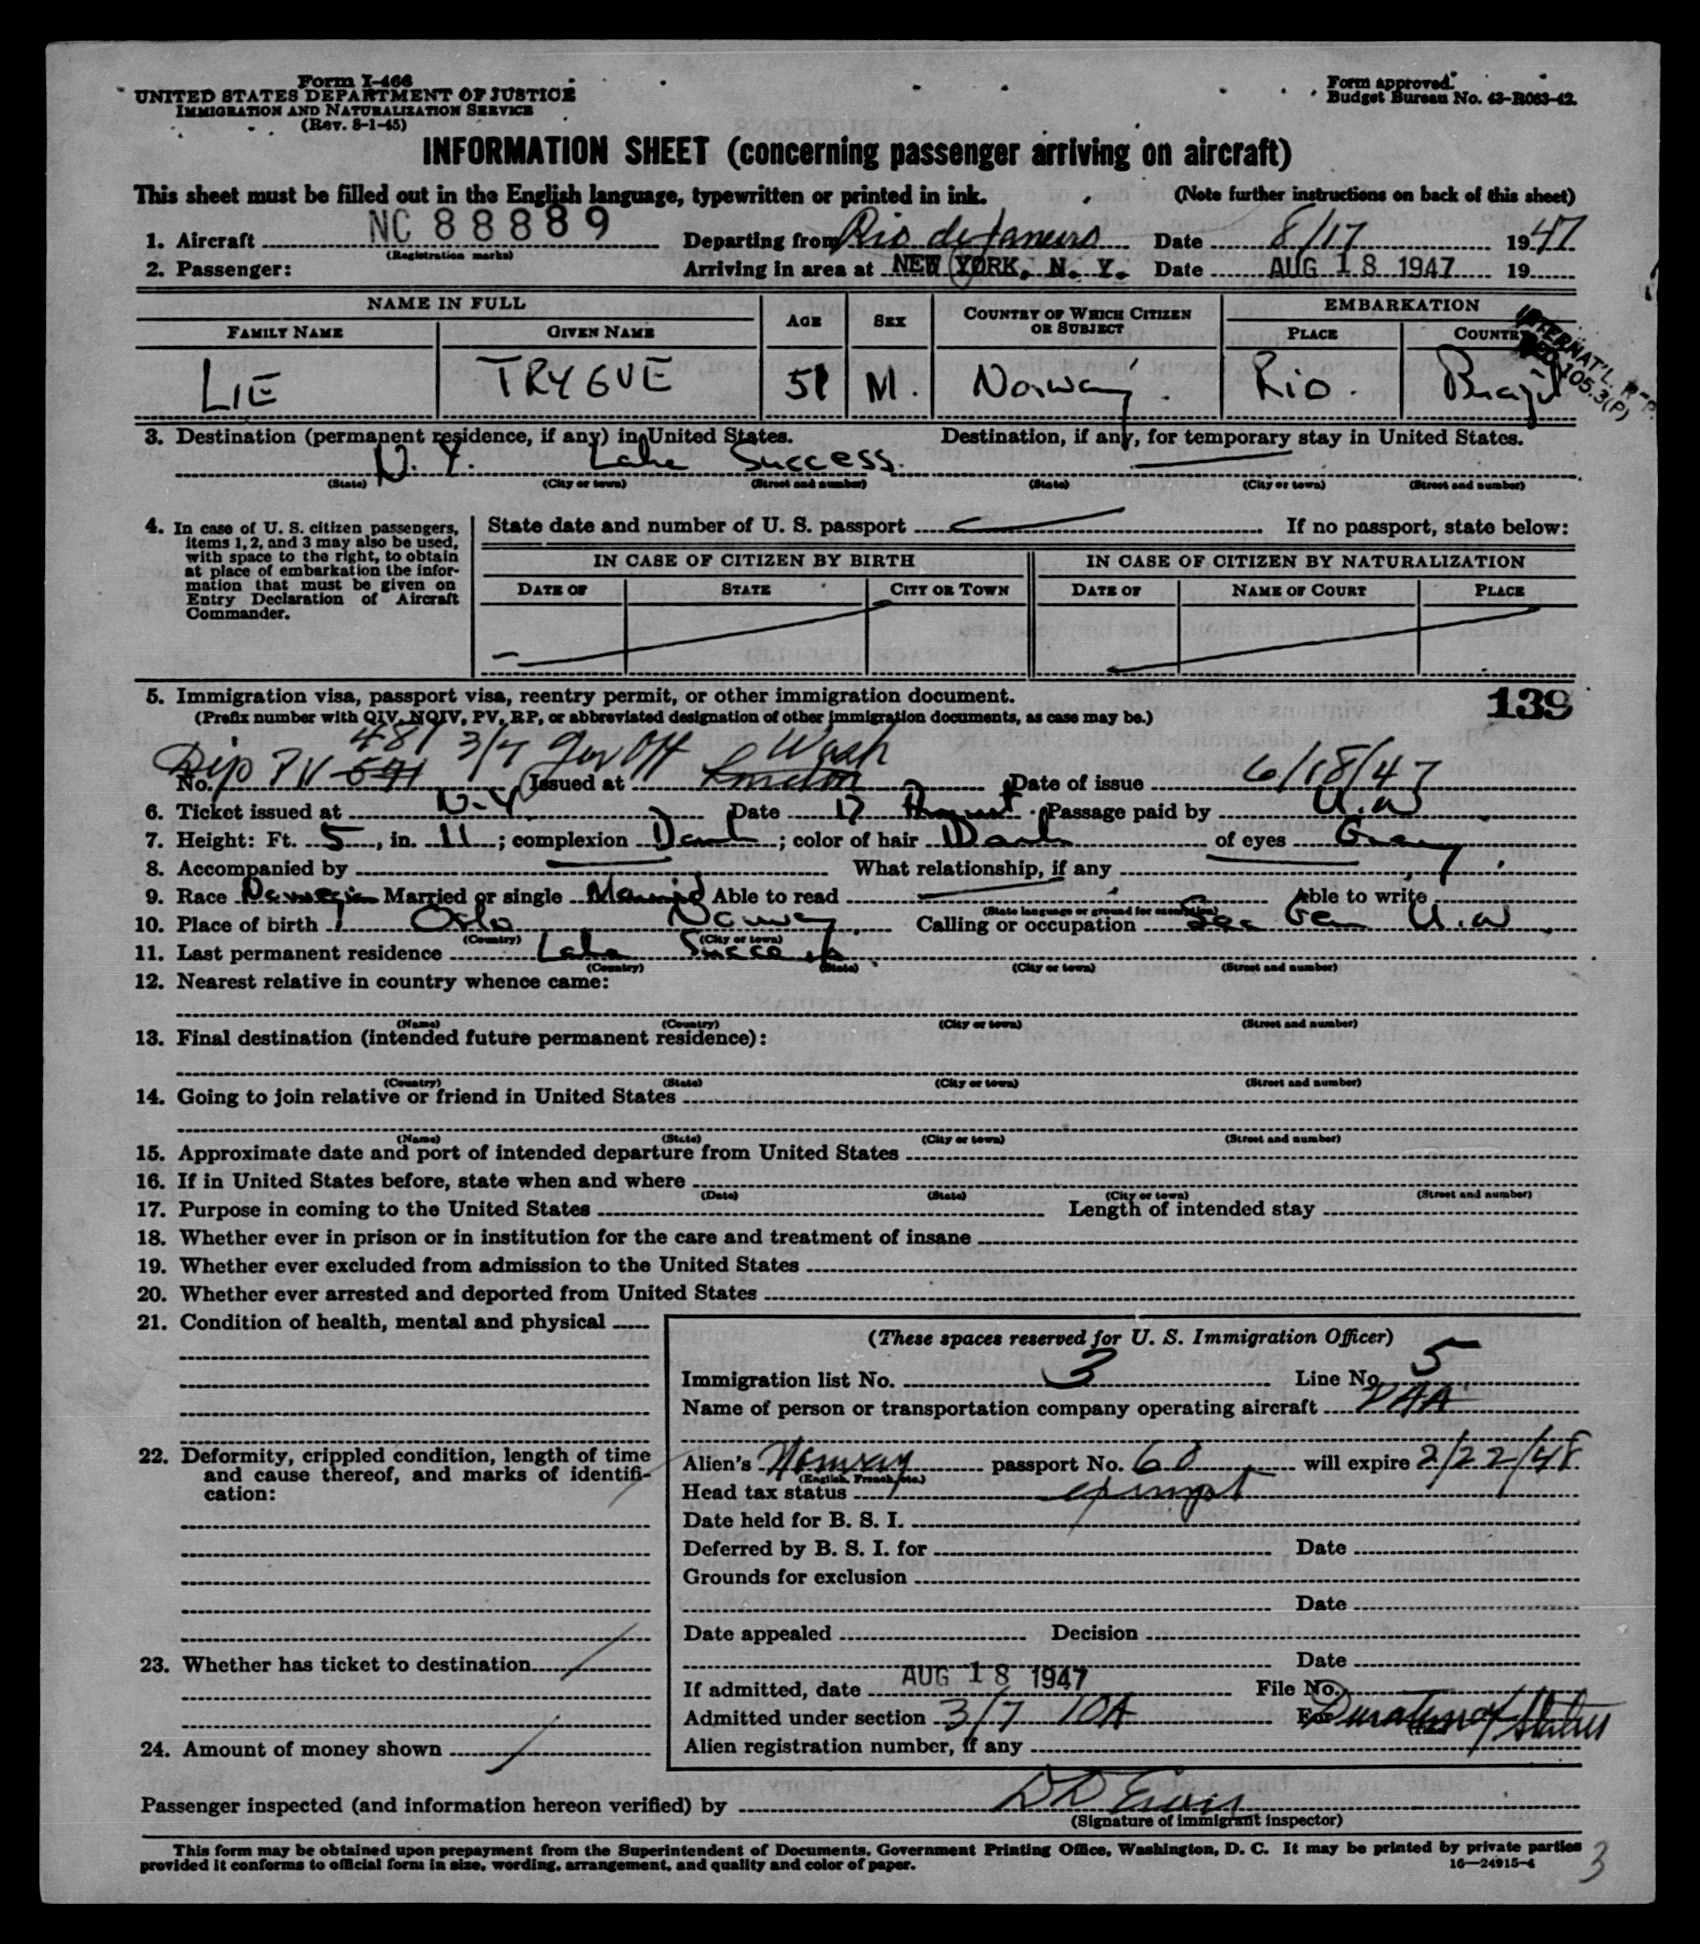 Form I-466
UNITED STATES DEPARTMENT OF JUSTICE
IMMIGRATION AND NATURALIZATION SERVICE
(Rev. 8-1-45)
Form approved.
Budget Bureau No. 43-R063-42.
INFORMATION SHEET (concerning passenger arriving on aircraft)
This sheet must be filled out in the English language, typewritten or printed in ink. (Note further instructions on back of this sheet)
1. Aircraft NC 88889 Departing from Rio de Janeiro Date 8/17 1947
(Registration marks)
2. Passenger: Arriving in area at NEW YORK, N. Y. Date AUG 18 1947 19
NAME IN FULL AGE SEX COUNTRY OF WHICH CITIZEN OR SUBJECT EMBARKATION
FAMILY NAME GIVEN NAME PLACE COUNTRY
INTERNAT'L.
105.3(P)
LIE TRYGVE 51 M. Norway. Rio. Brazil
3. Destination (permanent residence, if any) in United States. Destination, if any, for temporary stay in United States.
N.Y. Lake Success.
(State) (City or town) (Street and number) (State) (City or town) (Street and number)
4. In case of U. S. citizen passengers, items 1, 2, and 3 may also be used, with space to the right, to obtain at place of embarkation the information that must be given on Entry Declaration of Aircraft Commander.
State date and number of U. S. passport If no passport, state below:
IN CASE OF CITIZEN BY BIRTH IN CASE OF CITIZEN BY NATURALIZATION
DATE OF STATE CITY OR TOWN DATE OF NAME OF COURT PLACE
5. Immigration visa, passport visa, reentry permit, or other immigration document. 139
(Prefix number with QIV, NQIV, PV, RP, or abbreviated designation of other immigration documents, as case may be.)
481 3/7 Gov Off Wash
No. Dip PV 541 Issued at London Date of issue 6/18/47
6. Ticket issued at N.Y. Date 17 August. Passage paid by U.N
7. Height: Ft. 5, in. 11; complexion Dark; color of hair Dark of eyes Gray.
8. Accompanied by What relationship, if any
9. Race Norwegian Married or single Married Able to read Able to write
(State language or ground for exemption)
10. Place of birth Oslo Norway. Calling or occupation Sec Gen U.N
(Country) (City or town)
11. Last permanent residence Lake Success
(Country) (State) (City or town) (Street and number)
12. Nearest relative in country whence came:
(Name) (Country) (City or town) (Street and number)
13. Final destination (intended future permanent residence):
(Country) (State) (City or town) (Street and number)
14. Going to join relative or friend in United States
(Name) (State) (City or town) (Street and number)
15. Approximate date and port of intended departure from United States
16. If in United States before, state when and where
(Date) (State) (City or town) (Street and number)
17. Purpose in coming to the United States Length of intended stay
18. Whether ever in prison or in institution for the care and treatment of insane
19. Whether ever excluded from admission to the United States
20. Whether ever arrested and deported from United States
21. Condition of health, mental and physical
22. Deformity, crippled condition, length of time and cause thereof, and marks of identification:
23. Whether has ticket to destination
24. Amount of money shown
(These spaces reserved for U. S. Immigration Officer)
Immigration list No. 3 Line No. 5
Name of person or transportation company operating aircraft PAA
Alien's Norway passport No. 60 will expire 2/22/48
(English, French, etc.)
Head tax status exempt
Date held for B. S. I.
Deferred by B. S. I. for Date
Grounds for exclusion
Date
Date appealed Decision
Date
If admitted, date AUG 18 1947 File No.
Admitted under section 3/7 10A For Duration of Status
Alien registration number, if any
Passenger inspected (and information hereon verified) by
(Signature of immigrant inspector)
This form may be obtained upon prepayment from the Superintendent of Documents, Government Printing Office, Washington, D. C. It may be printed by private parties
provided it conforms to official form in size, wording, arrangement, and quality and color of paper. 16—24915-4
3